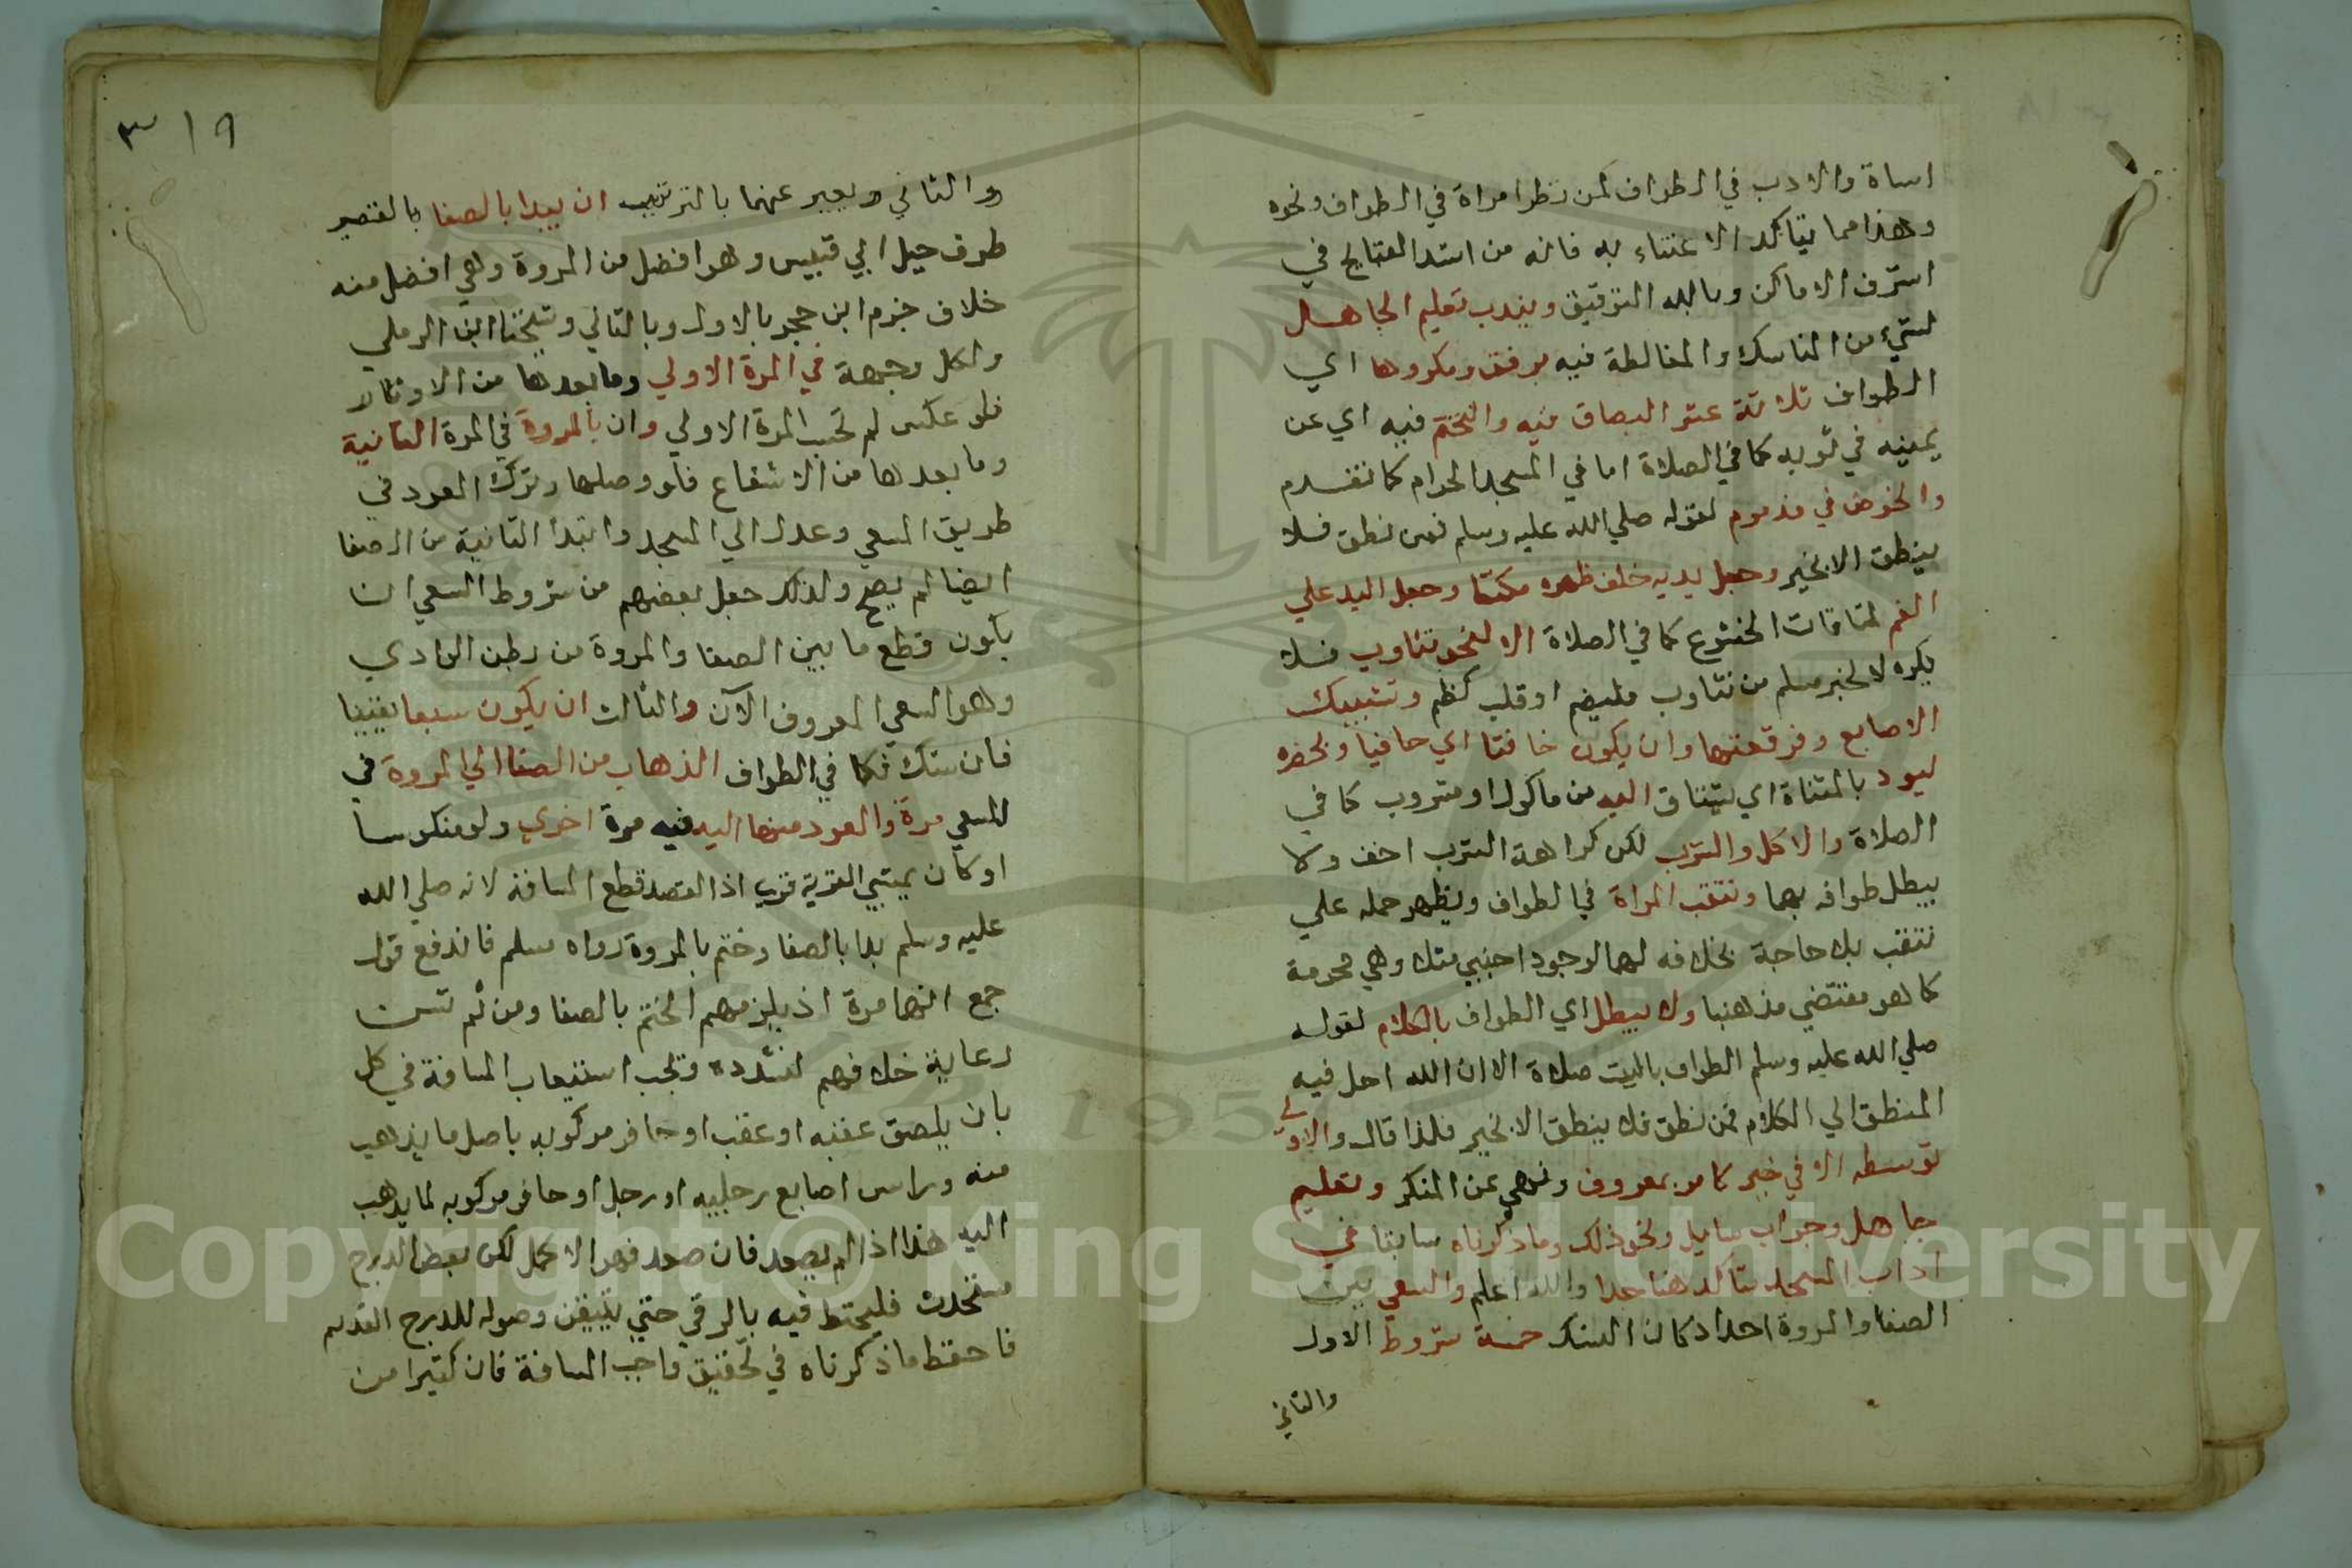 اساة والادب في الطواف كمن نظر امراة في الطواف ونحوه
وهذا مما يتاكد الاعتناء به فانه من اشد القبايح في
اشرف الاماكن وبالله التوفيق ويندب تعليم الجاهل
لشيء من المناسك والمغالطة فيه برفق ومكروها اي
الطواف ثلاثة عشر البصاق فيه والتنخم فيه اي عن
يمينه في ثوبه كما في الصلاة اما في المسجد الحرام كما تقدم
والخوض في مذموم لقوله صلي الله عليه وسلم فمن نطق فلا
ينطق الا بخير وجعل يديه خلف ظهره مكتفا وجعل اليد علي
الفم لمنافات الخشوع كما في الصلاة الا لنحو تثاوب فلا
يكره لا لخبر مسلم من تثاوب فليضم او قلب كظم وتشبيك
الاصابع وفرقعتها وان يكون خافتا اي حافيا وبحضره
ليود بالمثناة اي يشتاق اليه من ماكول او مشروب كما في
الصلاة والاكل والشرب لكن كراهة الشرب اخف ولا
يبطل طوافه بهما وتنقب المراة في الطواف ويظهر حمله علي
تنقب بلا حاجة بخلافه لها لوجود اجنبي مثلا وهي محرمة
كما هو مقتضي مذهبنا ولا يبطل اي الطواف بالكلام لقوله
صلي الله عليه وسلم الطواف بالبيت صلاة الا ان الله احل فيه
المنطق الي الكلام فمن نطق فلا ينطق الا بخير فلذا قال والاولي
توسطه الا في خير كامر بمعروف ونهي عن المنكر وتعليم
جاهل وجواب سايل ونحو ذلك وما ذكرناه سابقا في
اداب المسجد يتاكد هنا جدا والله اعلم والسعي بين
الصفا والمروة احد اركان النسك خمسة شروط الاول
والثاني
٣١٩
والثاني ويعبر عنهما بالترتيب ان يبدا بالصفا بالقصر
طرف جبل ابي قبيس وهو افضل من المروة وهي افضل منه
خلاف جزم ابن حجر بالاول وبالثاني وشيخنا ابن الرملي
ولكل وجهة في المرة الاولي وما بعدها من الاوتار
فلو عكس لم تحسب المرة الاولي وان بالمروة في المرة الثانية
وما بعدها من الاشفاع فلو وصلها وترك العود في
طريق المسعي وعدل الي المسجد وابتدا الثانية من الصفا
ايضا لم يصح ولذلك جعل بعضهم من شروط السعي ان
يكون قطع ما بين الصفا والمروة من بطن الوادي
وهو السعي المعروف الآن والثالث ان يكون سبعا يقينا
فان شك فكما في الطواف الذهاب من الصفا الي المروة في
المسعي مرة والعود منها اليه فيه مرة اخري ولو منكوسا
او كان يمشي القهقري اذ القصد قطع المسافة لانه صلي الله
عليه وسلم بدا بالصفا وختم بالمروة رواه مسلم فاندفع قول
جمع انهما مرة اذ يلزمهم الختم بالصفا ومن ثم تسن
رعاية خلافهم لشذوذه وتجب استيعاب المسافة في كل
بان يلصق عقبه او عقب او حافر مركوبه باصل ما يذهب
منه وراس اصابع رجليه او رجل او حافر مركوبه لما يذهب
اليه هذا اذا لم يصعد فان صعد فهو الاكمل لكن بعض الدرج
مستحدث فليحتط فيه بالرقي حتي يتيقن وصوله للدرج القديم
فاحفظ ما ذكرناه في تحقيق واجب المسافة فان كثيرا من
Copyright © King Saud University
1957